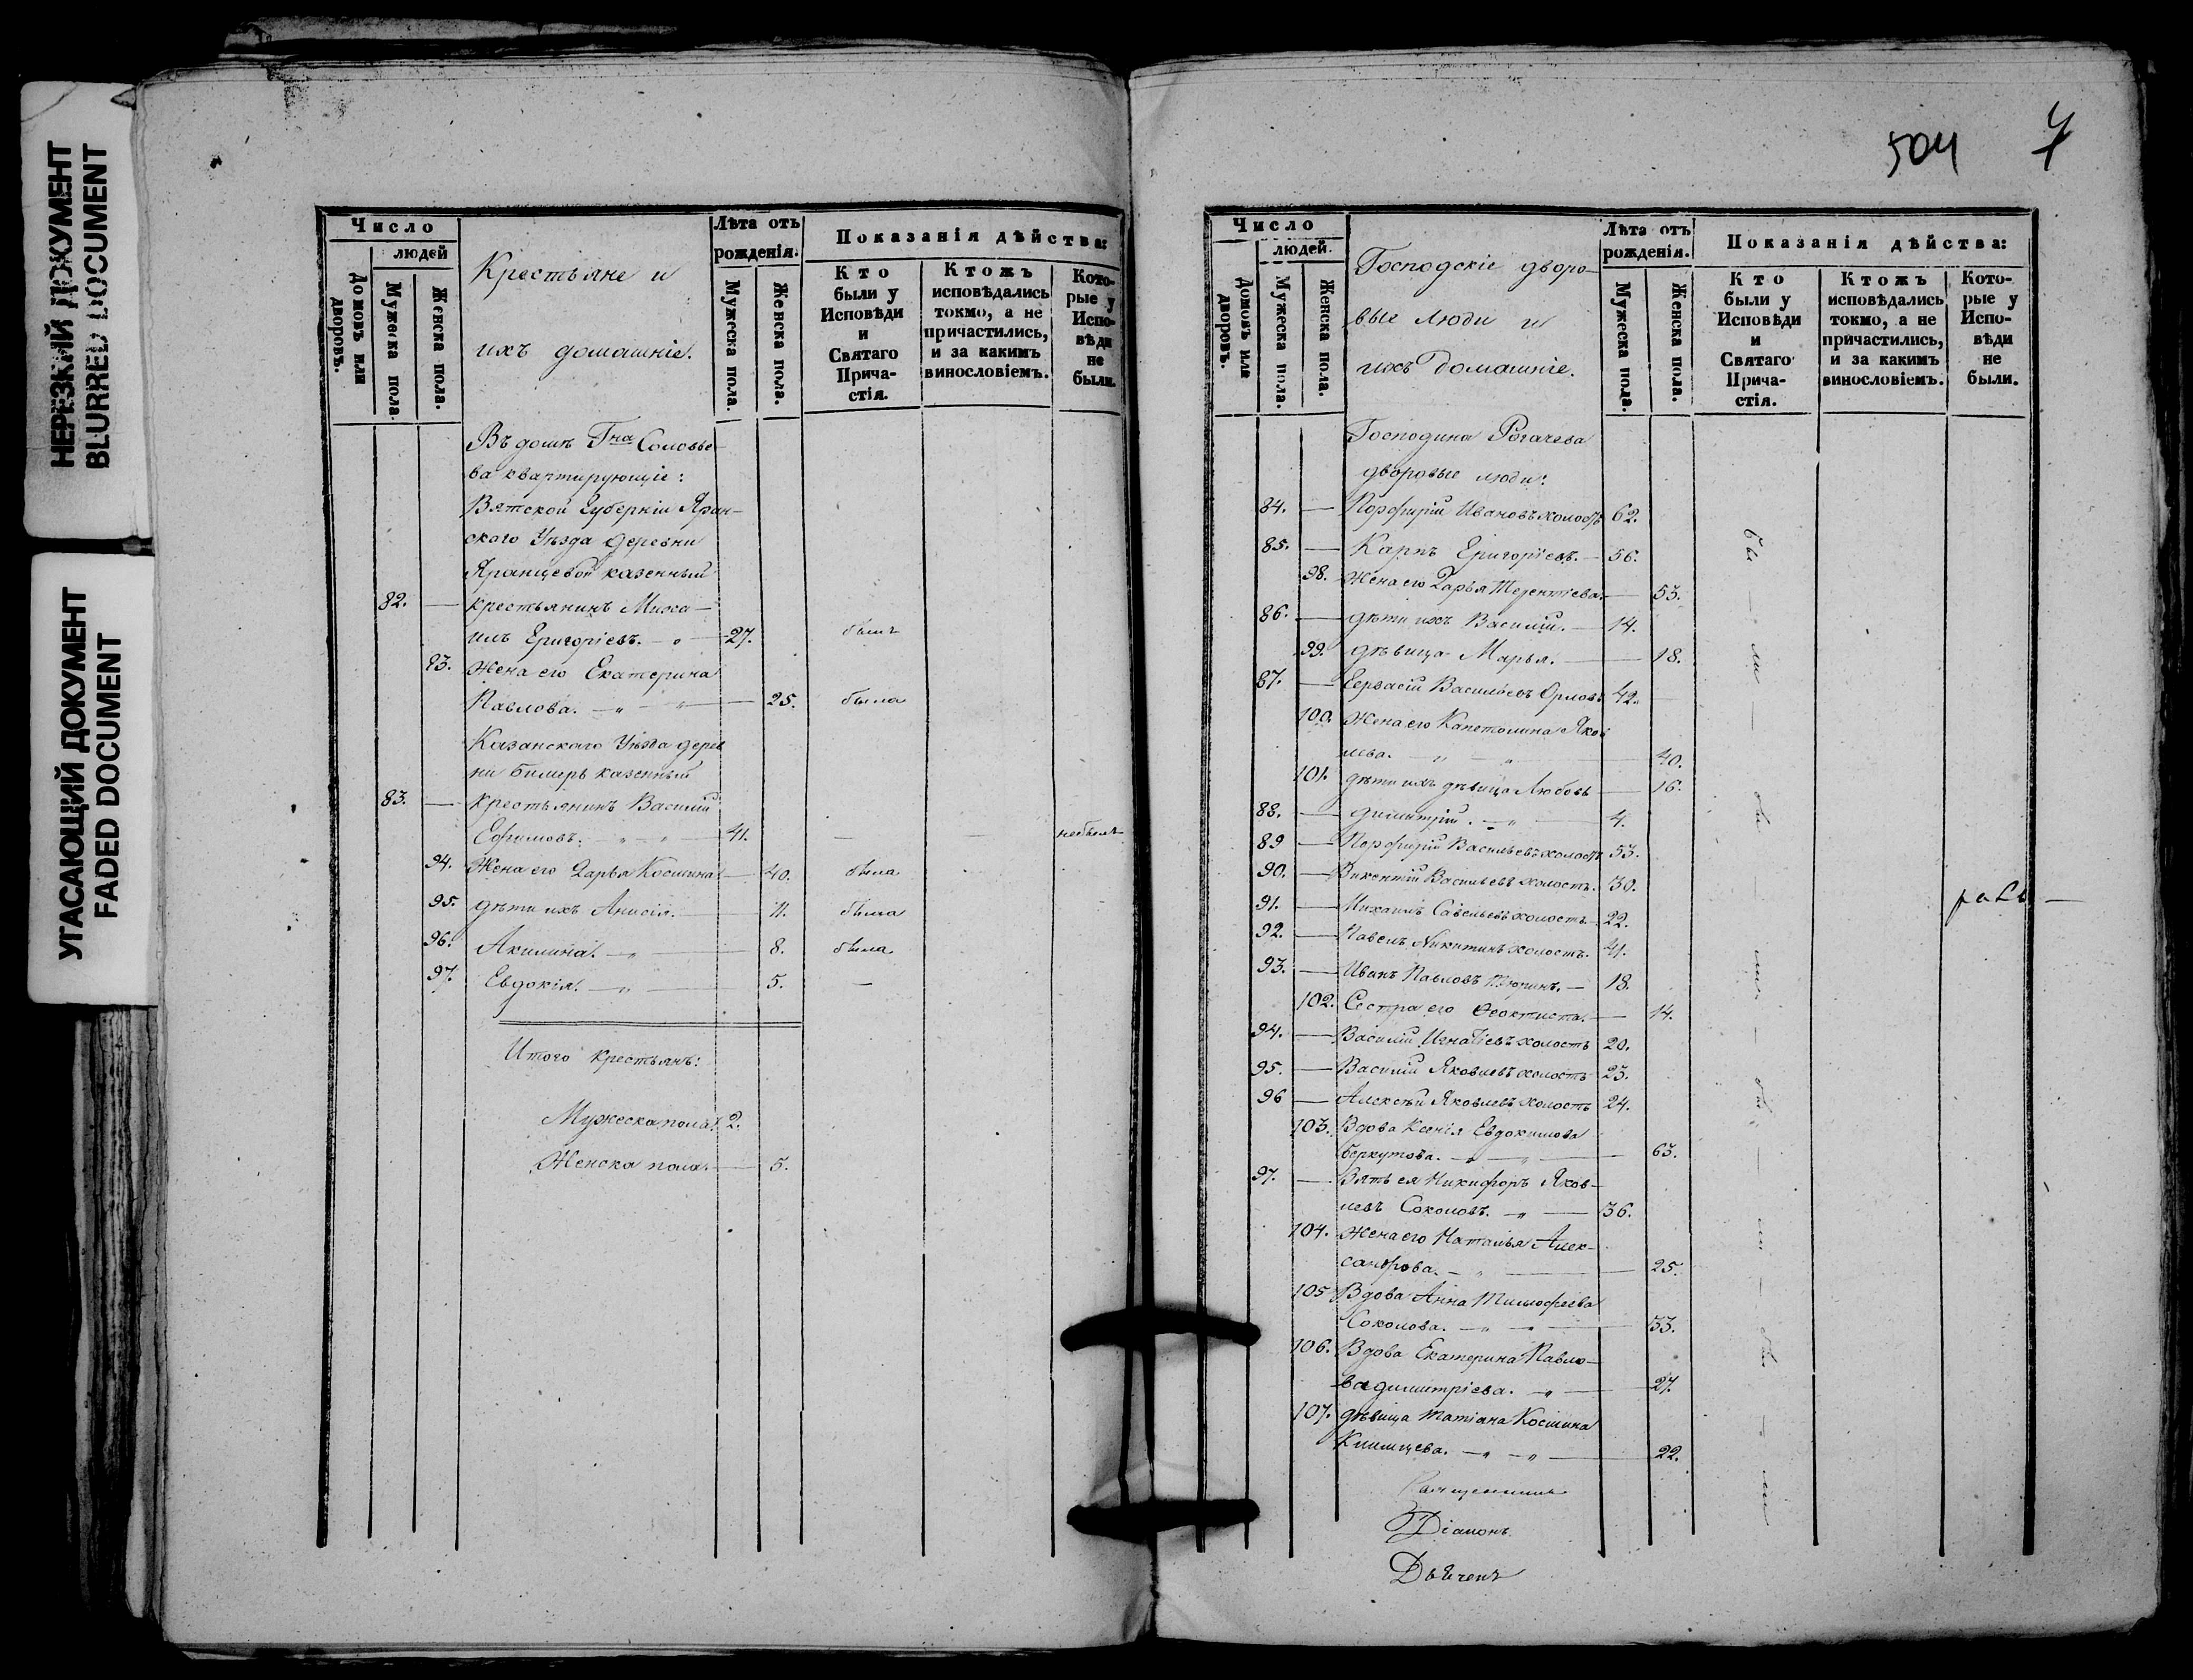 НЕРЕЗКИЙ ДОКУМЕНТ
BLURRED DOCUMENT
УГАСАЮЩИЙ ДОКУМЕНТ
FADED DOCUMENT
Число
людей
Домовъ или дворовъ.
Мужеска пола.
Женска пола.
Крестьяне и
ихъ домашніе.
Лѣта отъ
рожденія.
Мужеска пола.
Женска пола.
Показанія дѣйства:
Кто
были у
Исповѣди
и
Святаго
Прича-
стія.
Ктожъ
исповѣдались
токмо, а не
причастились,
и за какимъ
винословіемъ.
Кото-
рые у
Испо-
вѣди
не
были.
Въ домѣ Гна Соловье-
ва квартирующіе:
Вятской Губерніи Яран-
скаго Уѣзда деревни
Яранцевой казенный
82. — крестьянинъ Миха-
илъ Григорьевъ. — 27. былъ
93. Жена его Екатерина
Павлова. — 25. была
Казанскаго Уѣзда дерев
ни Бимерь казенный
83. — крестьянинъ Василій
Ефимовъ. — 41. — — небылъ
94. Жена его Дарья Косьмина — 40. была
95. дѣти ихъ Анисія. — 11. была
96. Акилина. — 8. была
97. Евдокія. — 5. —
Итого крестьянъ:
Мужеска пола. 2.
Женска пола. — 5.
504 7
Число
людей.
Домовъ или дворовъ.
Мужеска пола.
Женска пола.
Господскіе дворо-
вые люди и
ихъ домашніе.
Лѣта отъ
рожденія.
Мужеска пола.
Женска пола.
Показанія дѣйства:
Кто
были у
Исповѣди
и
Святаго
Прича-
стія.
Ктожъ
исповѣдались
токмо, а не
причастились,
и за какимъ
винословіемъ.
Кото-
рые у
Испо-
вѣди
не
были.
Господина Рогачева
дворовые люди:
84. — Порфирій Ивановъ холостъ 62.
85. — Карпъ Григорьевъ. — 56.
98. Жена его Дарья Терентіева. — 53.
86. — дѣти ихъ Василій. — 14.
99. дѣвица Марья. — 18.
87. — Гервасій Васильевъ Орловъ 42.
100. Жена его Капетолина Яков
лева. — 40.
101. дѣти ихъ дѣвица Любовь — 16.
88. — Димитрій. — 4.
89 — Порфирій Васильевъ холостъ 53.
90. — Викентій Васильевъ холостъ. 30.
91. — Михаилъ Савельевъ холостъ 22.
92. — Павелъ Никитинъ холостъ. 41.
93. — Иванъ Павловъ — 18.
102. Сестра его Феоктиста. — 14.
94. — Василій Игнатіевъ холостъ 20.
95. — Василій Яковлевъ холостъ 23.
96 — Алексѣй Яковлевъ холостъ 24.
103. Вдова Ксенія Евдокимова
Беркутова. — 63.
97. — Зять ея Никифоръ Яков-
левъ Соколовъ. — 36.
104. Жена его Наталья Алек-
сандрова. — 25.
105 Вдова Анна Тимофеева
Соколова. — 53.
106. Вдова Екатерина Павло-
ва Димитріева. — 27.
107. дѣвица Татіана Косьмина
Климцева. — 22.
бы — ли — бы — ли — бы — ли — бы — ли
Священникъ
Діаконъ
Дьячекъ